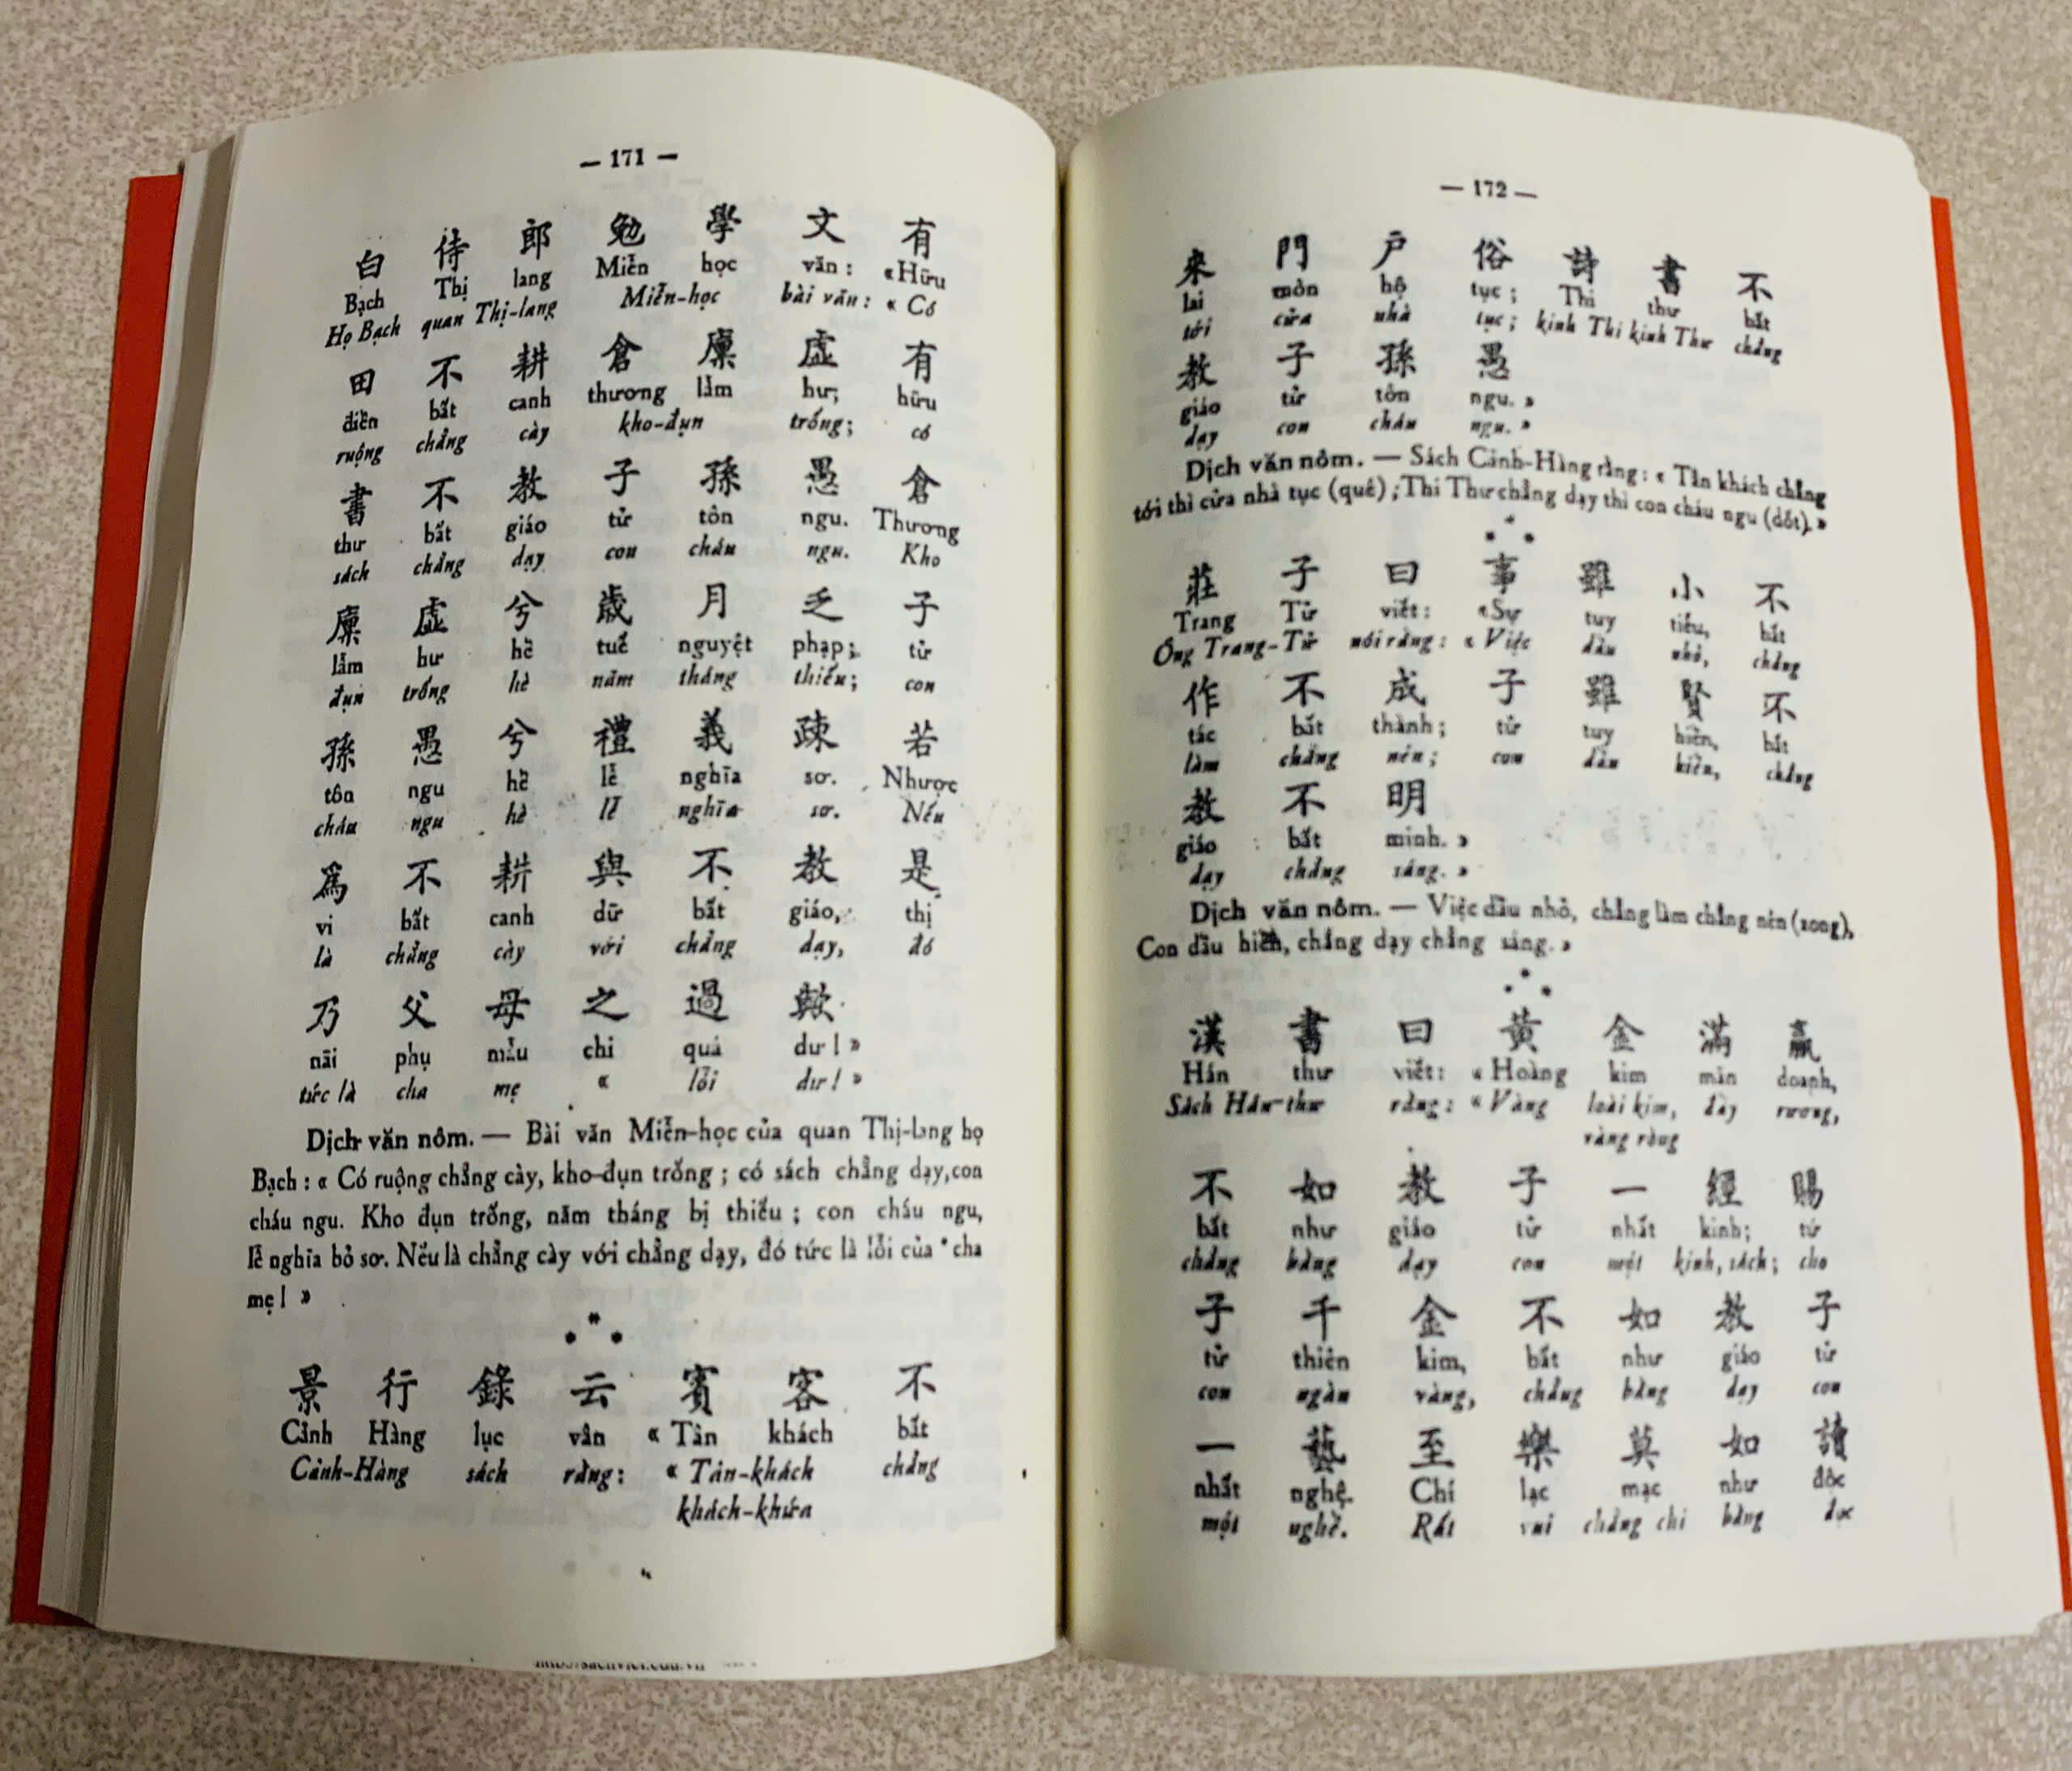 — 171 —
白 侍 郎 勉 學 文 有
Bạch Thị lang Miễn học văn : «Hữu
Họ Bạch quan Thị-lang Miễn-học bài văn : « Có
田 不 耕 倉 廩 虛 有
điền bất canh thương lẫm hư; hữu
ruộng chẳng cày kho-đụn trống; có
書 不 教 子 孫 愚 倉
thư bất giáo tử tôn ngu. Thương
sách chẳng dạy con cháu ngu. Kho
廩 虛 兮 歲 月 乏 子
lẫm hư hề tuế nguyệt phạp; tử
đụn trống hè năm tháng thiếu; con
孫 愚 兮 禮 義 疎 若
tôn ngu hề lễ nghĩa sơ. Nhược
cháu ngu hè lễ nghĩa sơ. Nếu
爲 不 耕 與 不 教 是
vi bất canh dữ bất giáo, thị
là chẳng cày với chẳng dạy, đó
乃 父 母 之 過 歟
nãi phụ mẫu chi quá dư ! »
tức là cha mẹ « lỗi dư ! »
Dịch văn nôm. — Bài văn Miễn-học của quan Thị-lang họ
Bạch : « Có ruộng chẳng cày, kho-đụn trống ; có sách chẳng dạy,con
cháu ngu. Kho đụn trống, năm tháng bị thiếu ; con cháu ngu,
lễ nghĩa bỏ sơ. Nếu là chẳng cày với chẳng dạy, đó tức là lỗi của cha
mẹ ! »
景 行 錄 云 賓 客 不
Cảnh Hàng lục vân « Tân khách bất
Cảnh-Hàng sách rằng : « Tân-khách chẳng
khách-khứa
— 172 —
來 門 戶 俗 詩 書 不
lai môn hộ tục ; Thi thư bất
tới cửa nhà tục ; kinh Thi kinh Thư chẳng
教 子 孫 愚
giáo tử tôn ngu. »
dạy con cháu ngu. »
Dịch văn nôm. — Sách Cảnh-Hàng rằng : « Tân khách chẳng
tới thì cửa nhà tục (quê) ; Thi Thư chẳng dạy thì con cháu ngu (dốt). »
莊 子 曰 事 雖 小 不
Trang Tử viết : «Sự tuy tiểu, bất
Ông Trang-Tử nói rằng : « Việc dầu nhỏ, chẳng
作 不 成 子 雖 賢 不
tác bất thành ; tử tuy hiền, bất
làm chẳng nên ; con dầu hiền, chẳng
教 不 明
giáo bất minh. »
dạy chẳng sáng. »
Dịch văn nôm. — Việc dầu nhỏ, chẳng làm chẳng nên (xong),
Con dầu hiền, chẳng dạy chẳng sáng. »
漢 書 曰 黃 金 滿 贏
Hán thư viết : « Hoàng kim mãn doanh,
Sách Hán-thư rằng : « Vàng loài kim, đầy rương,
vàng ròng
不 如 教 子 一 經 賜
bất như giáo tử nhất kinh; tứ
chẳng bằng dạy con một kinh, sách ; cho
子 千 金 不 如 教 子
tử thiên kim, bất như giáo tử
con ngàn vàng, chẳng bằng dạy con
一 藝 至 樂 莫 如 讀
nhất nghệ. Chí lạc mạc như độc
một nghề. Rất vui chẳng chi bằng đọc